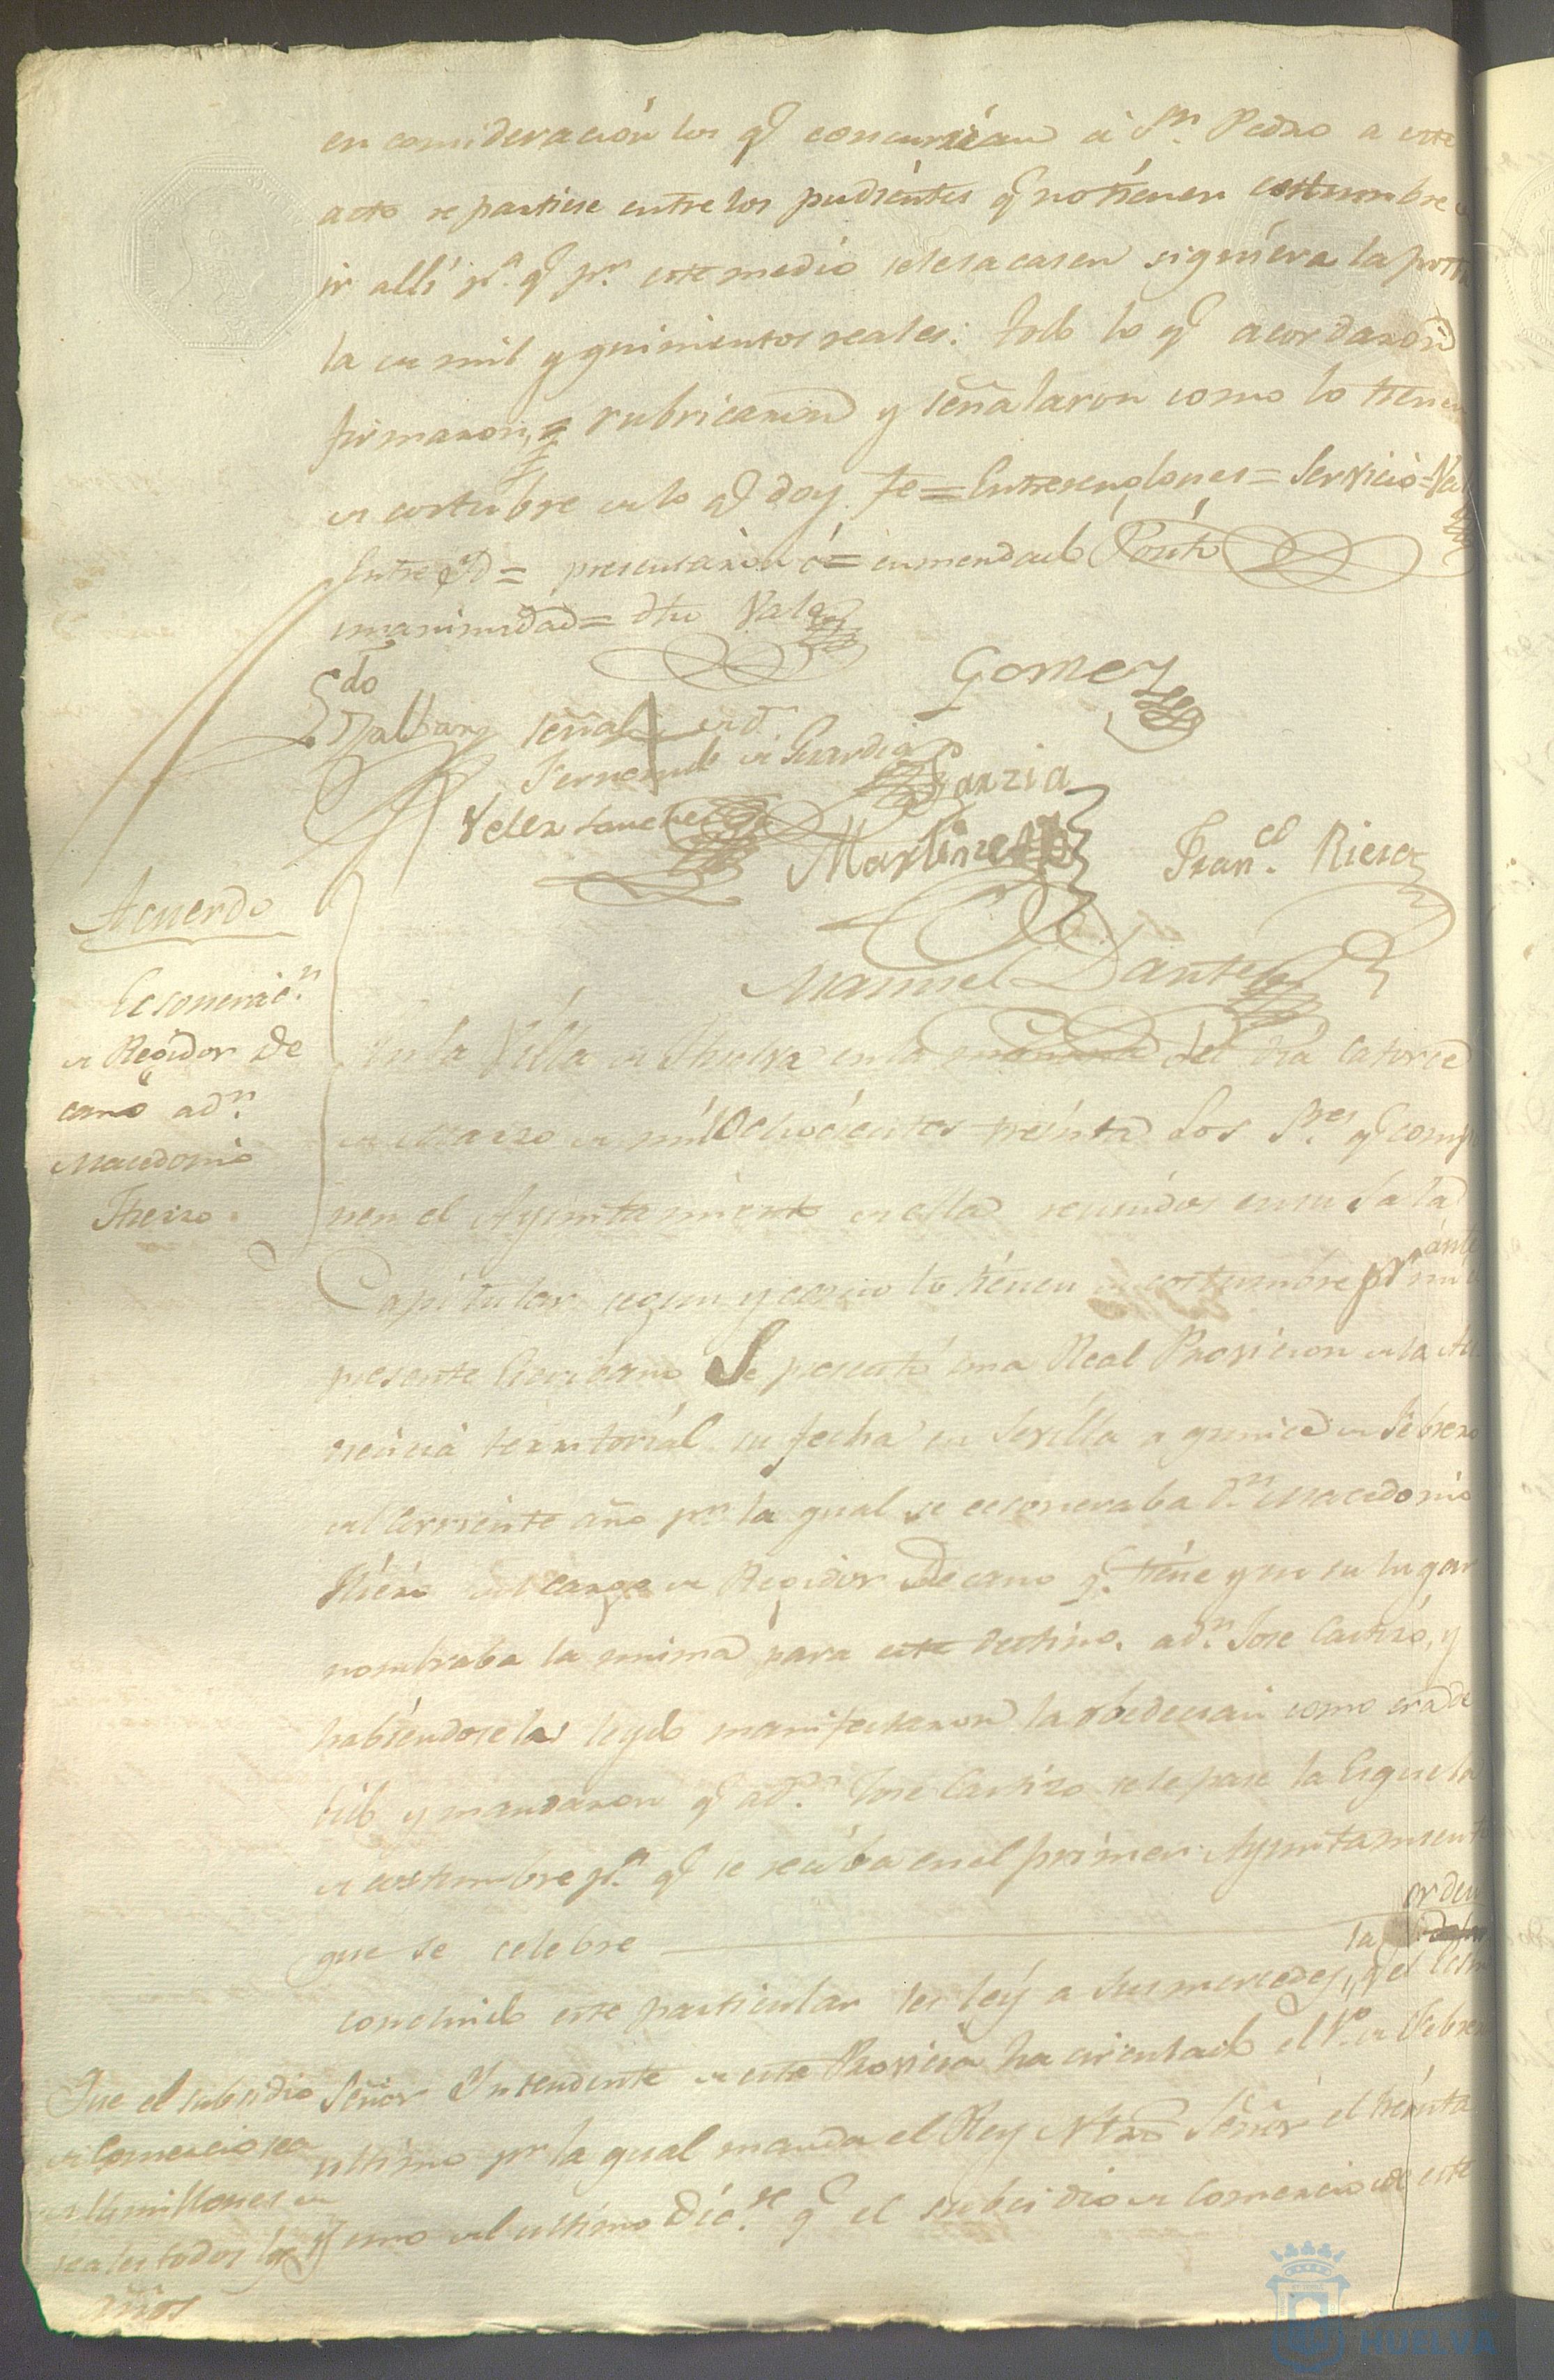 en consideración los q.e concurrían á S.n Pedro a este
acto se partiese entre los pudientes q.e no tienen costumbre de
ir allí p.a q.e p.r este medio se les sacasen siquiera la
la de mil y quinientos reales: todo lo q.e acordaron
firmaron, rubricaron y señalaron como lo tienen
de costubre de lo q.e doy fe = Entrerenglones = Servicio = Val
Entre = presentaron ó = enmendado Posito
unanimidad = dho Vale
Gomez
señal de d.n
Fernando de Guardia
Garzia
Velez Sanchez
Martinez
Fran.co Riera
Manuel Dantes
Acuerdo
Ecsonerac.n
de Regidor De
cano a d.n
Macedonio
Thierro.
En la Villa de Huelva en la mañana del dia catorce
de Marzo de mil Ochocientos treinta Los S.res q.e compo
nen el Ayuntamiento de ella reunidos en su Sala
Capitular segun y como lo tienen de costumbre pr ante mi el
presente Escribano Se presentó una Real Provision de la Au
diencia territorial su fecha en Sevilla a quince de Febrero
del corriente año p.r la qual se ecsoneraba d.n Macedonio
del cargo de Regidor Decano q.e tiene y en su lugar
nombraba la misma para este destino. a d.n Jose Castizo, y
habiendosela leydo manifestaron la obedecian como era de
bido y mandaron q.e a D.n Jose Castizo se le pase la Esquela
de costumbre p.a q.e se reciba en el primer Ayuntamiento
que se celebre
orden
concluido este particular les leý a sus mercedes, la q.e el
Que el subsidio
de Comercio sea
de millones de
reales todos los
años
Señor Yntendente de esta Provincia ha circulado el 1.o de Febrero
ultimo pr la qual manda el Rey Ntro Señor el treinta
y uno del ultimo Dic.re q.e el subsidio de Comercio de este
HUELVA